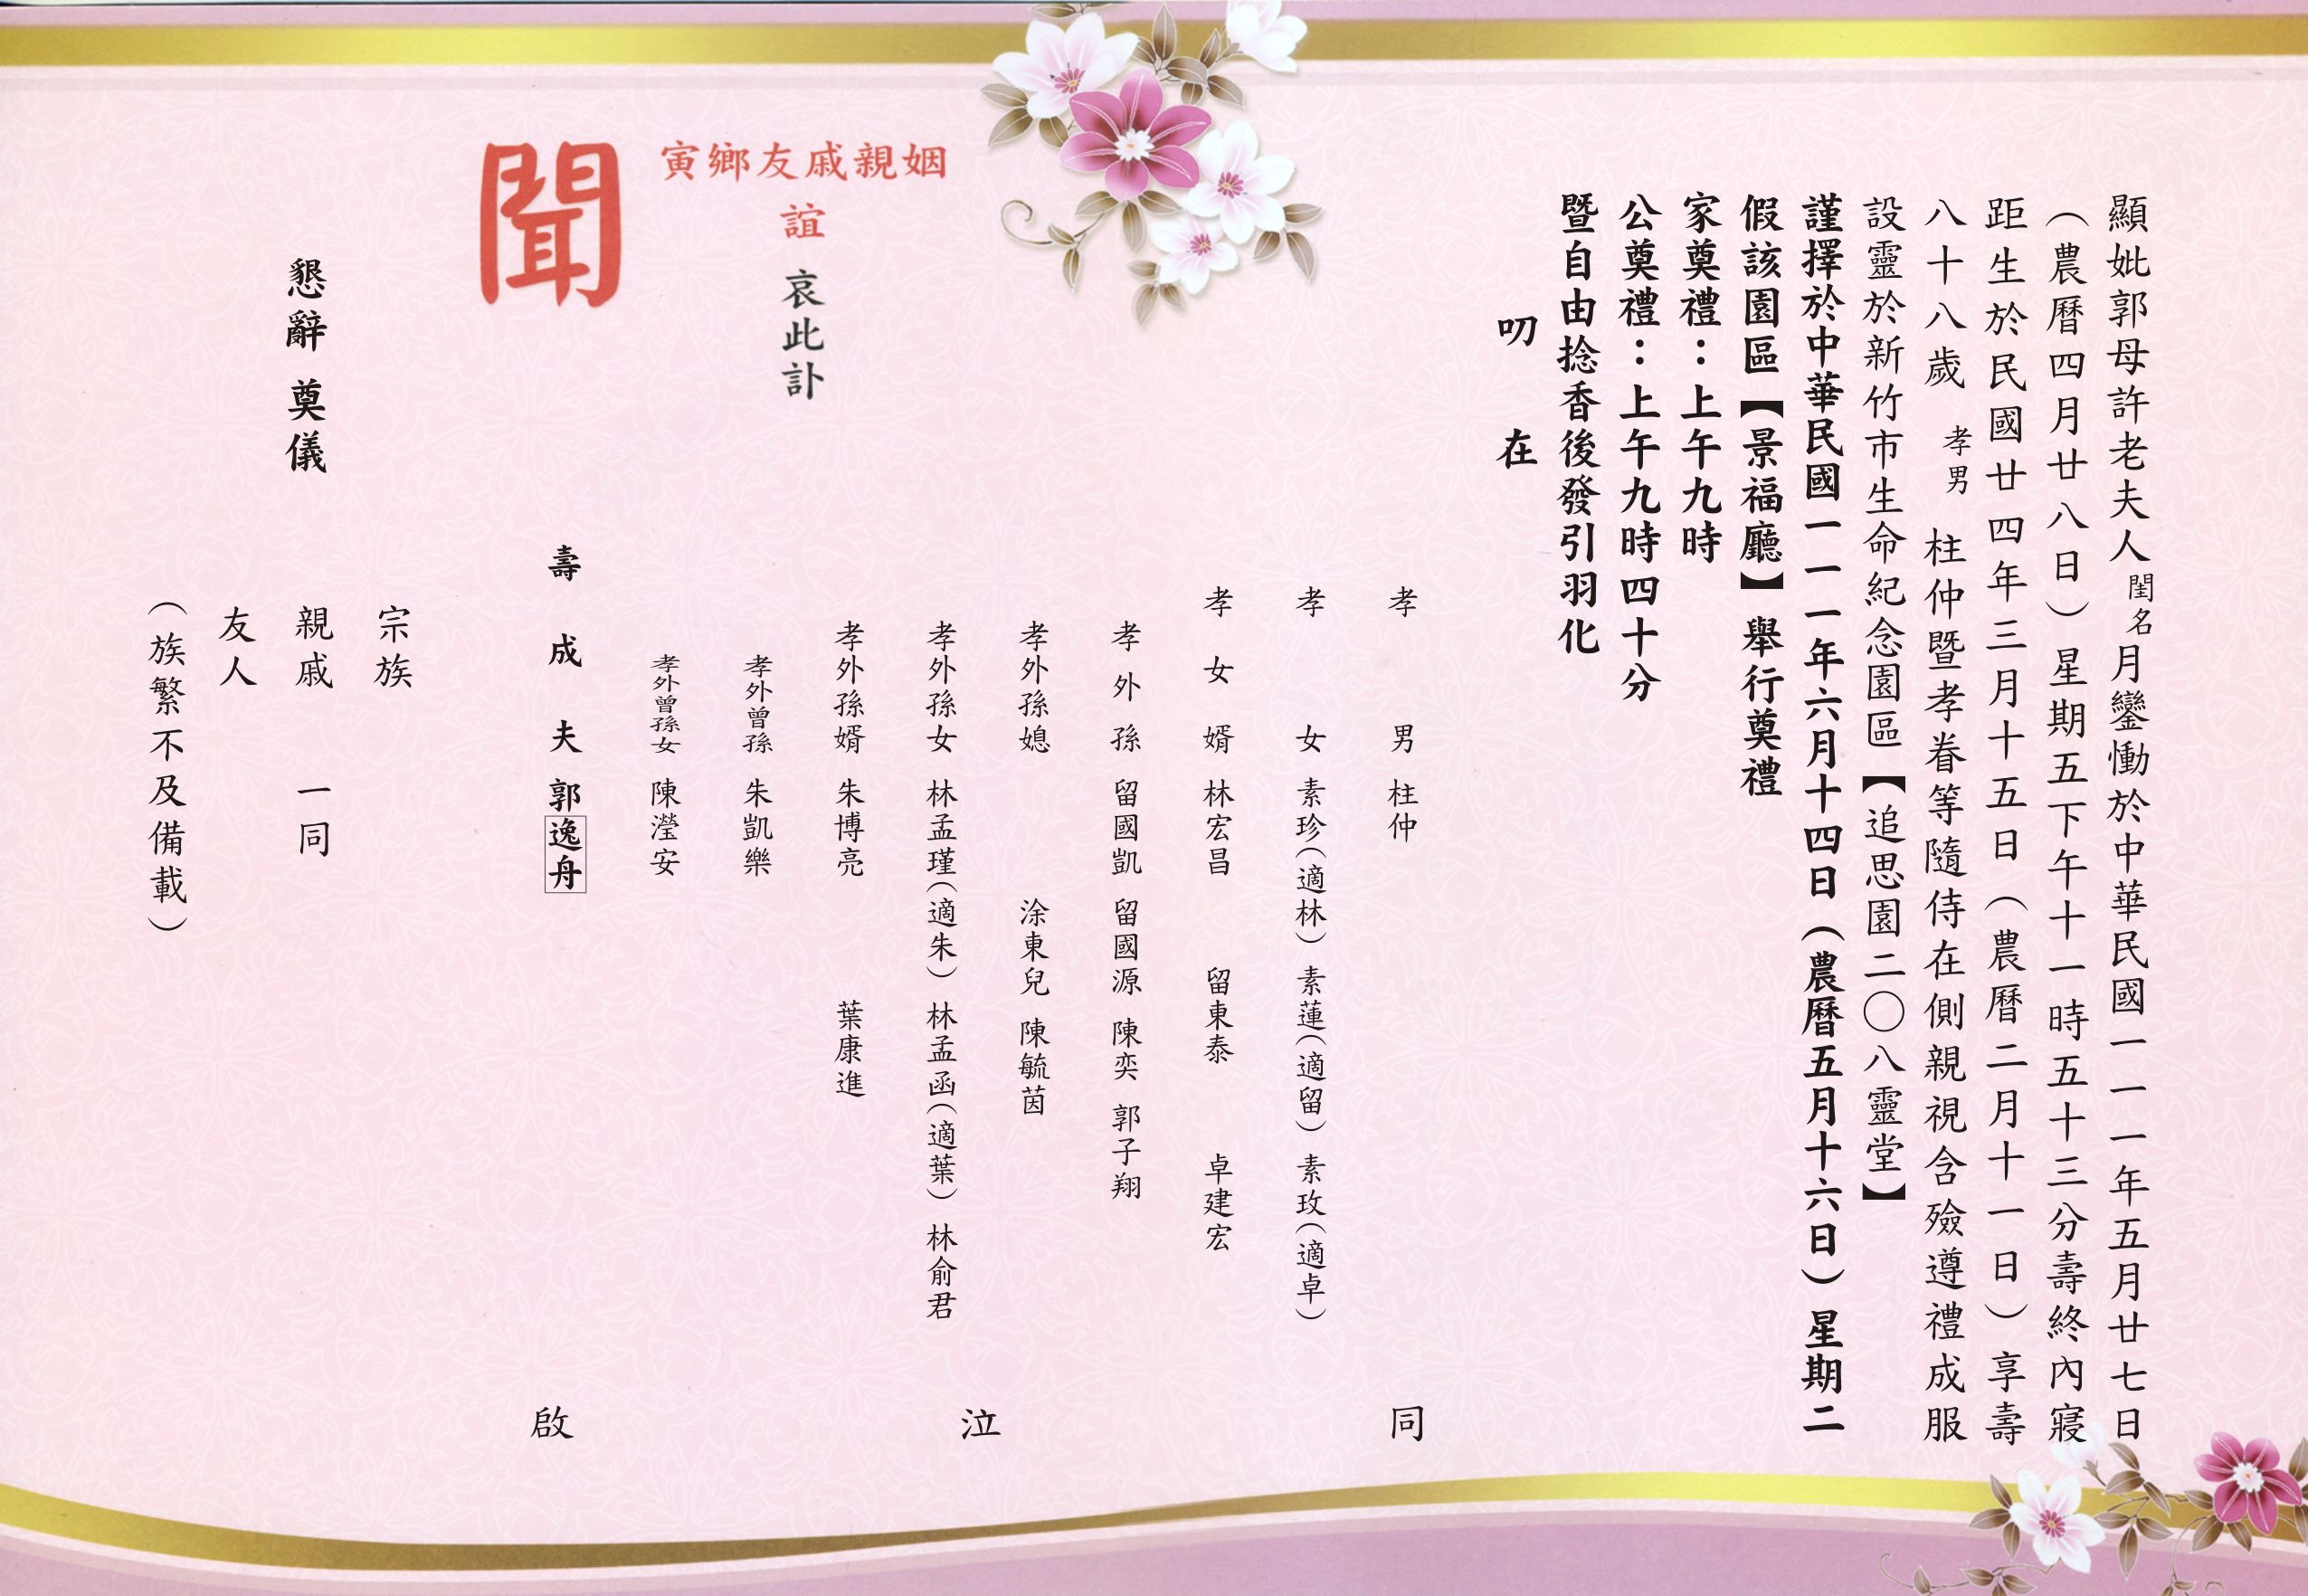 顯妣郭母許老夫人閨名月鑾慟於中華民國一一一年五月廿七日
（農曆四月廿八日）星期五下午十一時五十三分壽終內寢
距生於民國廿四年三月十五日（農曆二月十一日）享壽
八十八歲 孝男 柱仲暨孝眷等隨侍在側親視含殮遵禮成服
設靈於新竹市生命紀念園區【追思園二〇八靈堂】
謹擇於中華民國一一一年六月十四日（農曆五月十六日）星期二
假該園區【景福廳】舉行奠禮
家奠禮：上午九時
公奠禮：上午九時四十分
暨自由捻香後發引羽化
叨在
姻親戚友鄉寅
誼 哀此訃
聞
孝男 柱仲
孝女 素珍（適林） 素蓮（適留） 素玫（適卓）
孝女婿 林宏昌 留東泰 卓建宏
孝外孫 留國凱 留國源 陳奕 郭子翔
孝外孫媳 涂東兒 陳毓茵
孝外孫女 林孟瑾（適朱） 林孟函（適葉） 林俞君
孝外孫婿 朱博亮 葉康進
孝外曾孫 朱凱樂
孝外曾孫女 陳瀅安
壽成夫 郭逸舟
同泣啟
宗族
親戚 一同
友人
（族繁不及備載）
懇辭 奠儀